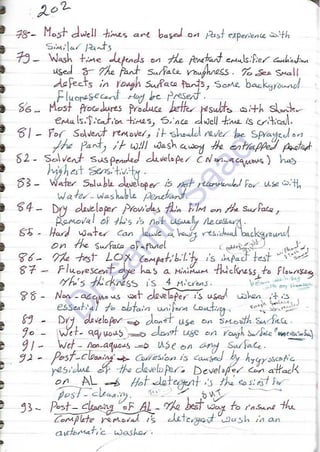 202
78- Most dwell times are based on Past experience with
Similar Parts
79- Wash time depends on the Penetrant emulsifier combination
used & The Part Surface roughness. To See Small
defects in rough Surface Parts, Some background
Fluorescent may be Present.
80- Most Procedures Produce better results with Shorter
emulsification times, Since dwell Time is critical.
81- For Solvent remover, it should never be Sprayed on
the Part, it will wash away the entrapped Penetrant
82- Solvent Suspended developer (Non-aqueous) has
highest Sensitivity.
83- Water Soluble developer is not recommended For use with
Water-washable Penetrant
84- Dry developer Provides thin film on the Surface,
Removal of this is not usually necessary.
85- Hard water Can leave a heavy residual background
on the Surface of a Panel
86- The test LOX Compatibility is impact test
87- Fluorescent dye has a Minimum thickness to Flouresce
This thickness is 4 microns.
88- Non-aqueous wet developer is used when it is
essential to obtain uniform Coating.
89- Dry developer → don't use on Smooth Surface.
90- Wet-aqueous → don't use on rough Surface
91- Wet-non-aqueous → use on any Surface.
92- Post-Cleaning → Corrosion is caused by hygroscopic
residue of the developer. Developer can attack
on AL → Hot detergent is the easiest for
post-cleaning. BUT
93- Post-Cleaning OF AL - The best way to insure the
Complete removal is detergent wash in an
automatic washer.